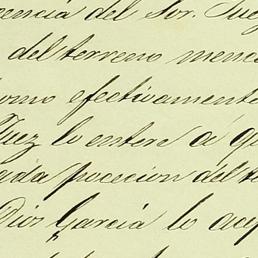 encia del Sor. Juez
del terreno menc
como efectivamente
Juez lo entere á qu
ada pocecion del te
Dios Garcia lo acep